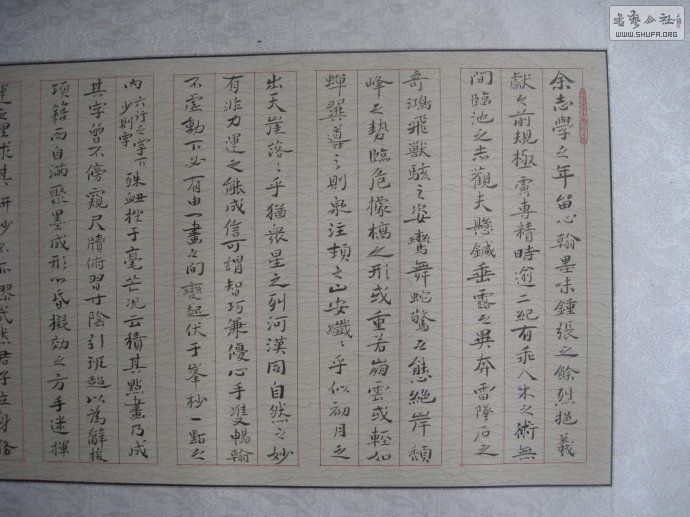 余志學之年留心翰墨味鍾張之餘烈挹羲
獻之前規極慮專精時逾二紀有乖入木之術無
間臨池之志觀夫懸鍼垂露之異奔雷墜石之
奇鴻飛獸駭之姿鸞舞蛇驚之態絕岸頹
峰之勢臨危據槁之形或重若崩雲或輕如
蟬翼導之則泉注頓之山安纖〻乎似初月之
出天崖落〻乎猶眾星之列河漢同自然之妙
有非力運之能成信可謂智巧兼優心手雙暢翰
不虛動下必有由一畫之間變起伏于峯杪一點之
內六行之字下少則字殊衄挫于毫芒況云積其點畫乃成
其字曾不傍窺尺牘俯習寸陰引班超以為辭援
項籍而自滿聚墨成形心昏擬効之方手迷揮
運之理求其妍妙不亦謬哉然君子立身務
書藝公社
WWW.SHUFA.ORG